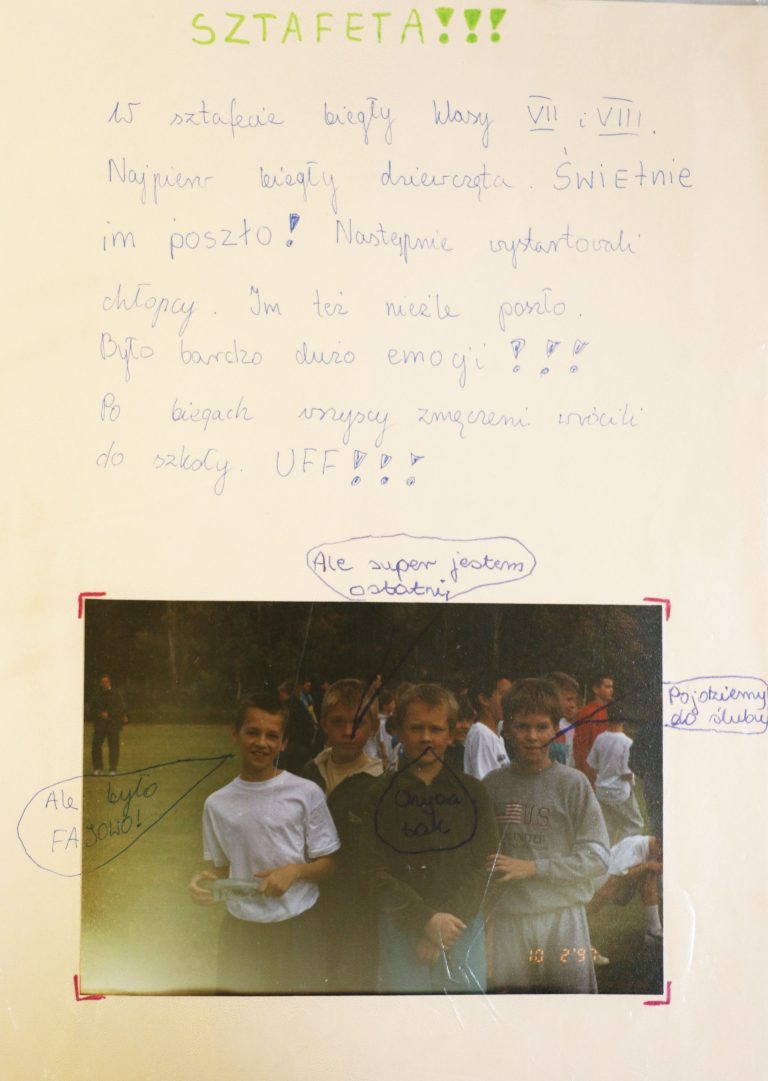 SZTAFETA!!!
W sztafecie biegły klasy VII i VIII.
Najpierw biegły dziewczęta. Świetnie
im poszło! Następnie wystartowali
chłopcy. Im też nieźle poszło.
Było bardzo dużo emocji !!!
Po biegach wszyscy zmęczeni wrócili
do szkoły. UFF!!!
Ale super jestem
ostatni
Pójdziemy
do ślubu
Ale było
FAJOWO!
Chyba
tak
US
10 2'97